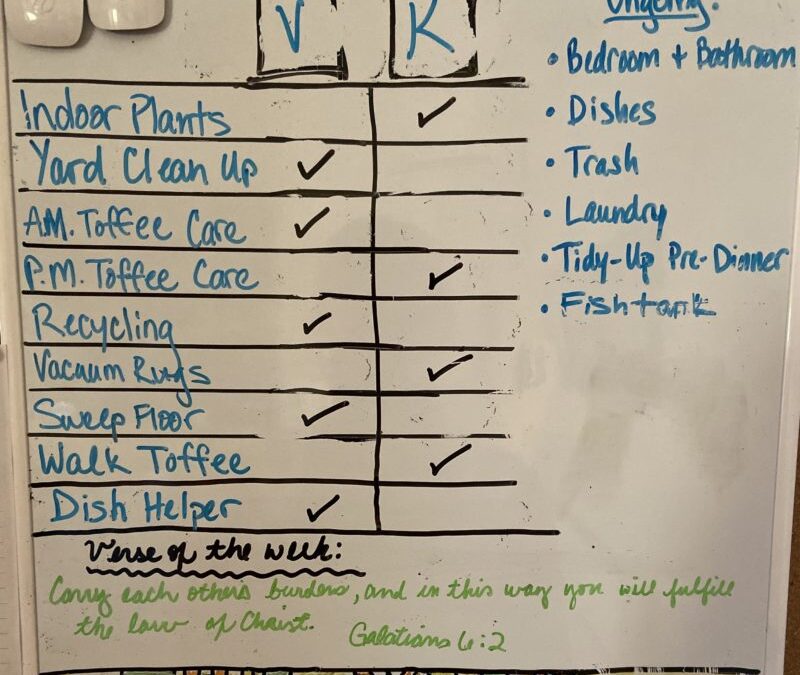 V K
Ongoing:
• Bedroom + Bathroom
• Dishes
• Trash
• Laundry
• Tidy-Up Pre-Dinner
• Fish tank
Indoor Plants ✓
Yard Clean Up ✓
A.M. Toffee Care ✓
P.M. Toffee Care ✓
Recycling ✓
Vacuum Rugs ✓
Sweep Floor ✓
Walk Toffee ✓
Dish Helper ✓
Verse of the week:
Carry each others burdens, and in this way you will fulfill
the law of Christ.
Galatians 6:2